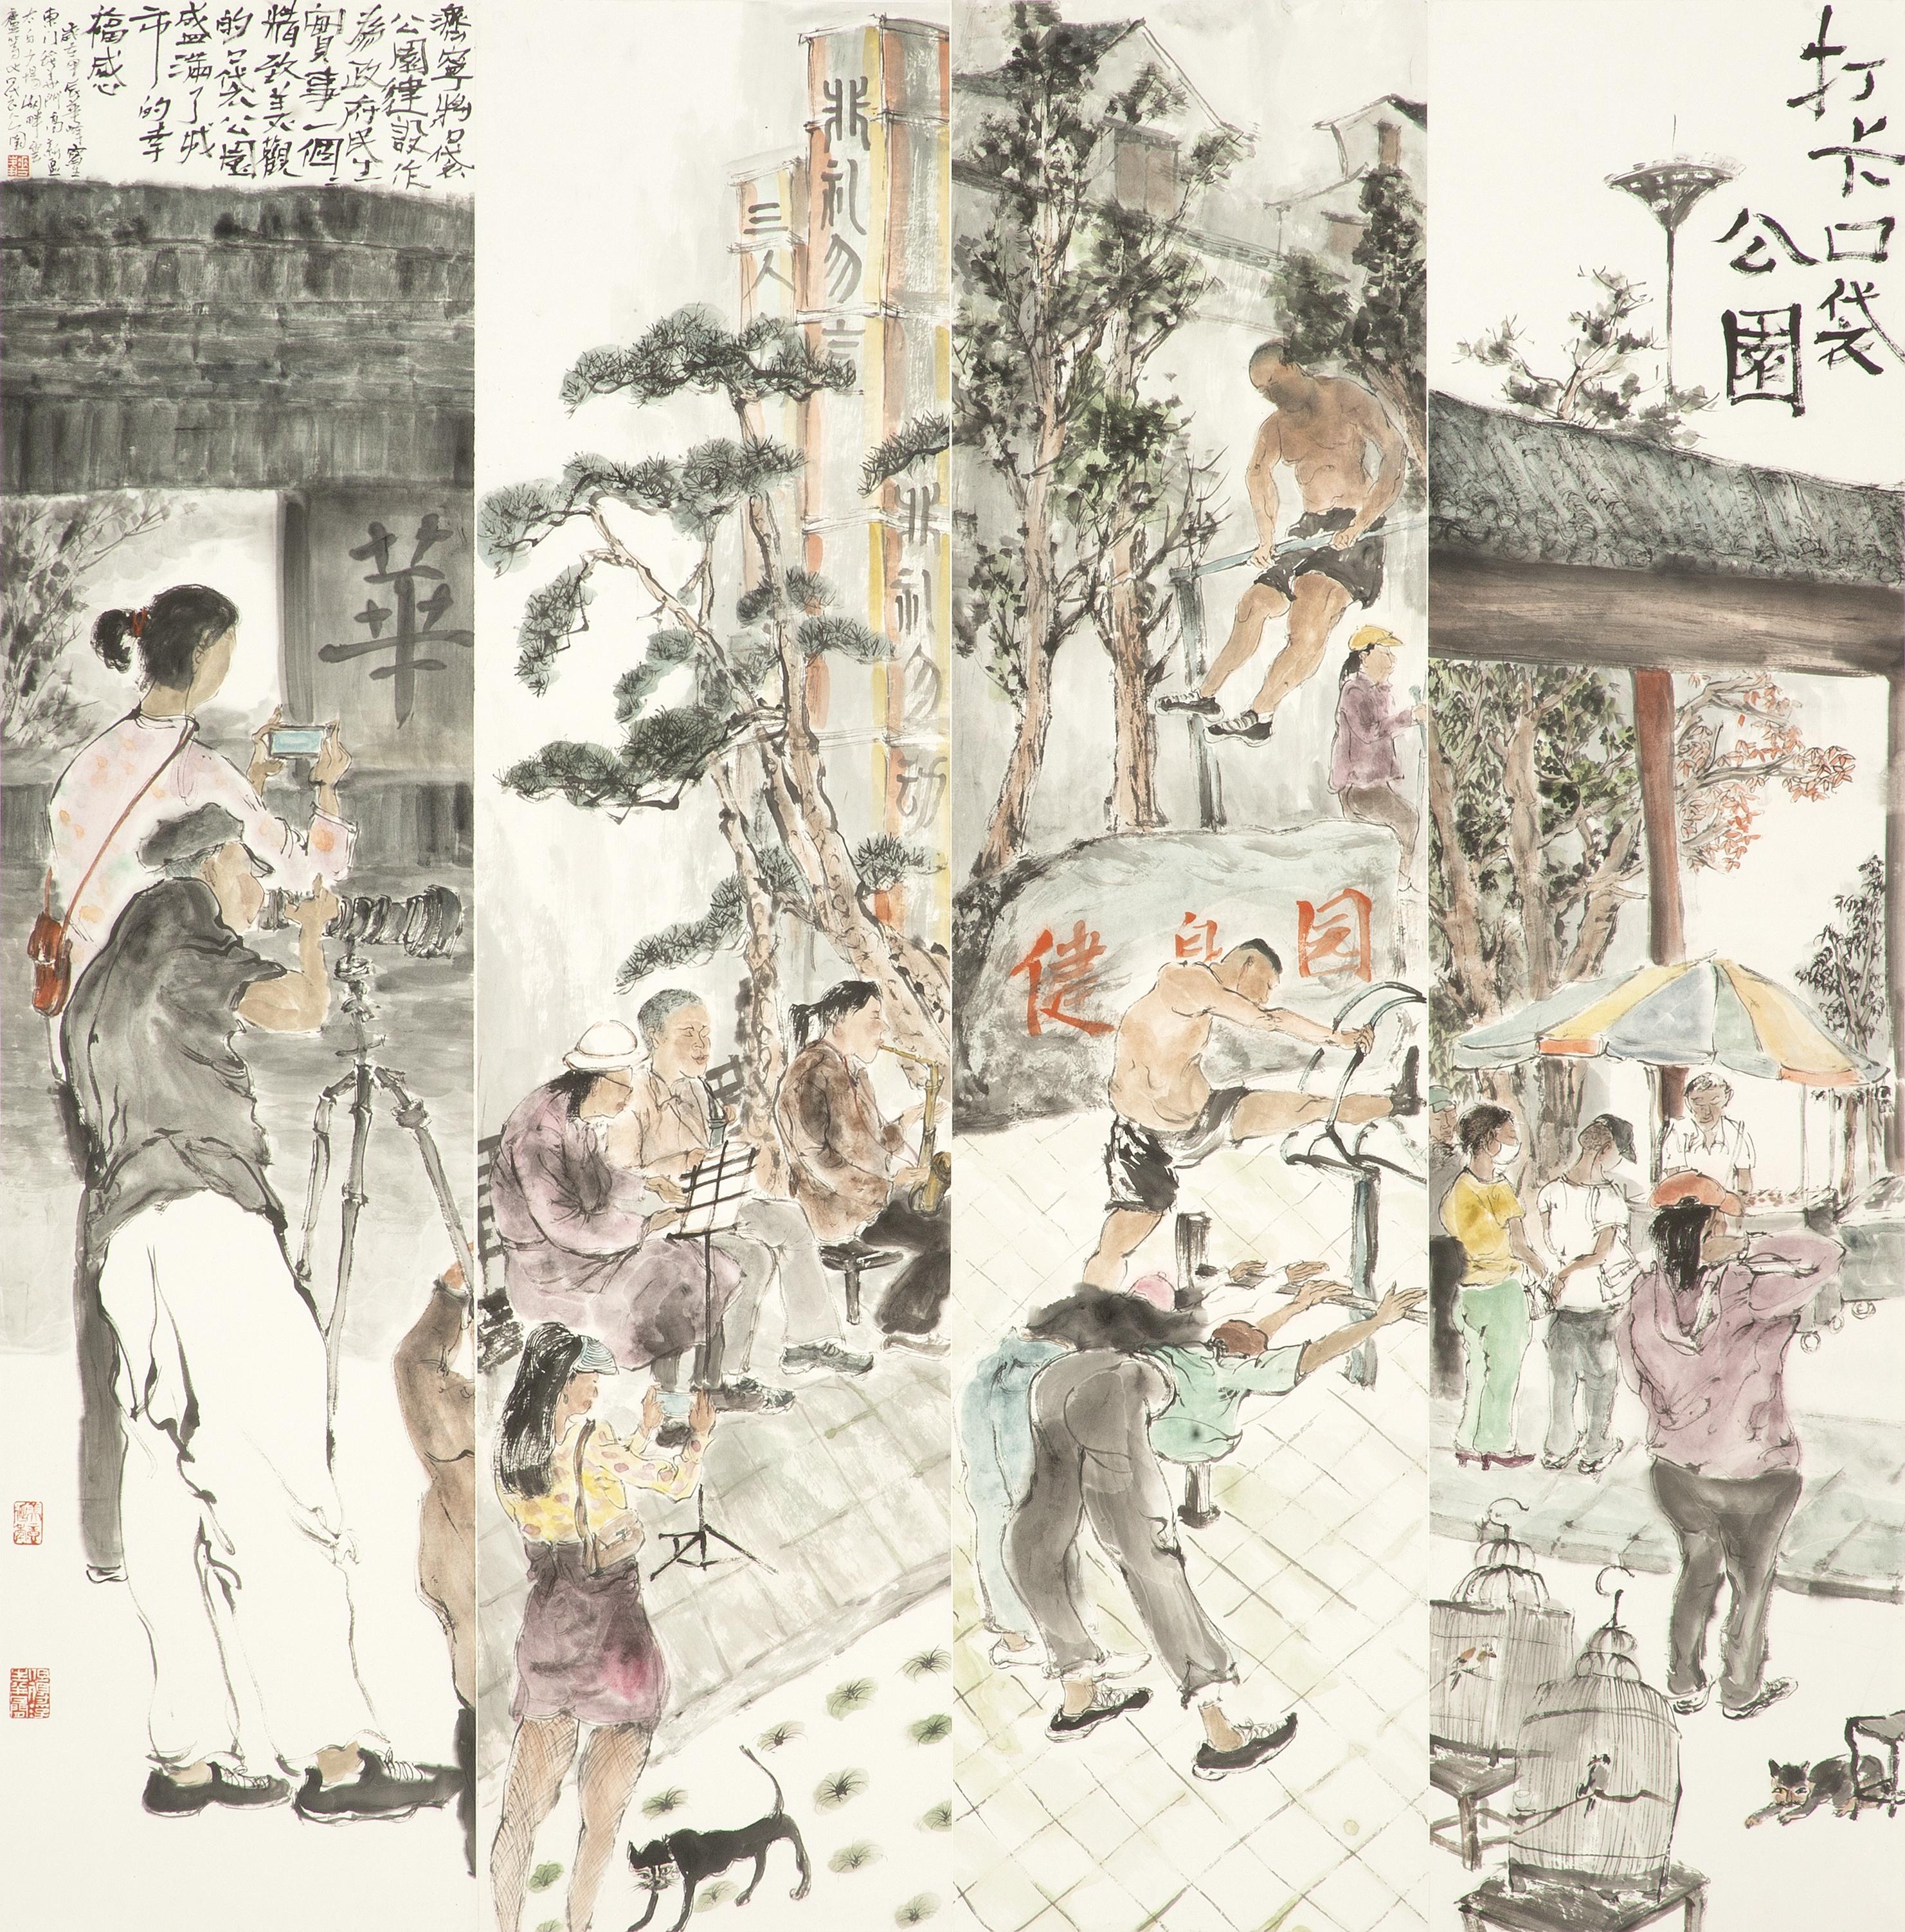 打卡口袋
公園
健身园
非礼勿言
三人
非礼勿动
濟寧將口袋
公園建設作
為政府民生
實事一個〻
精致美觀
的口袋公園
盛滿了城
市的幸
福感
華